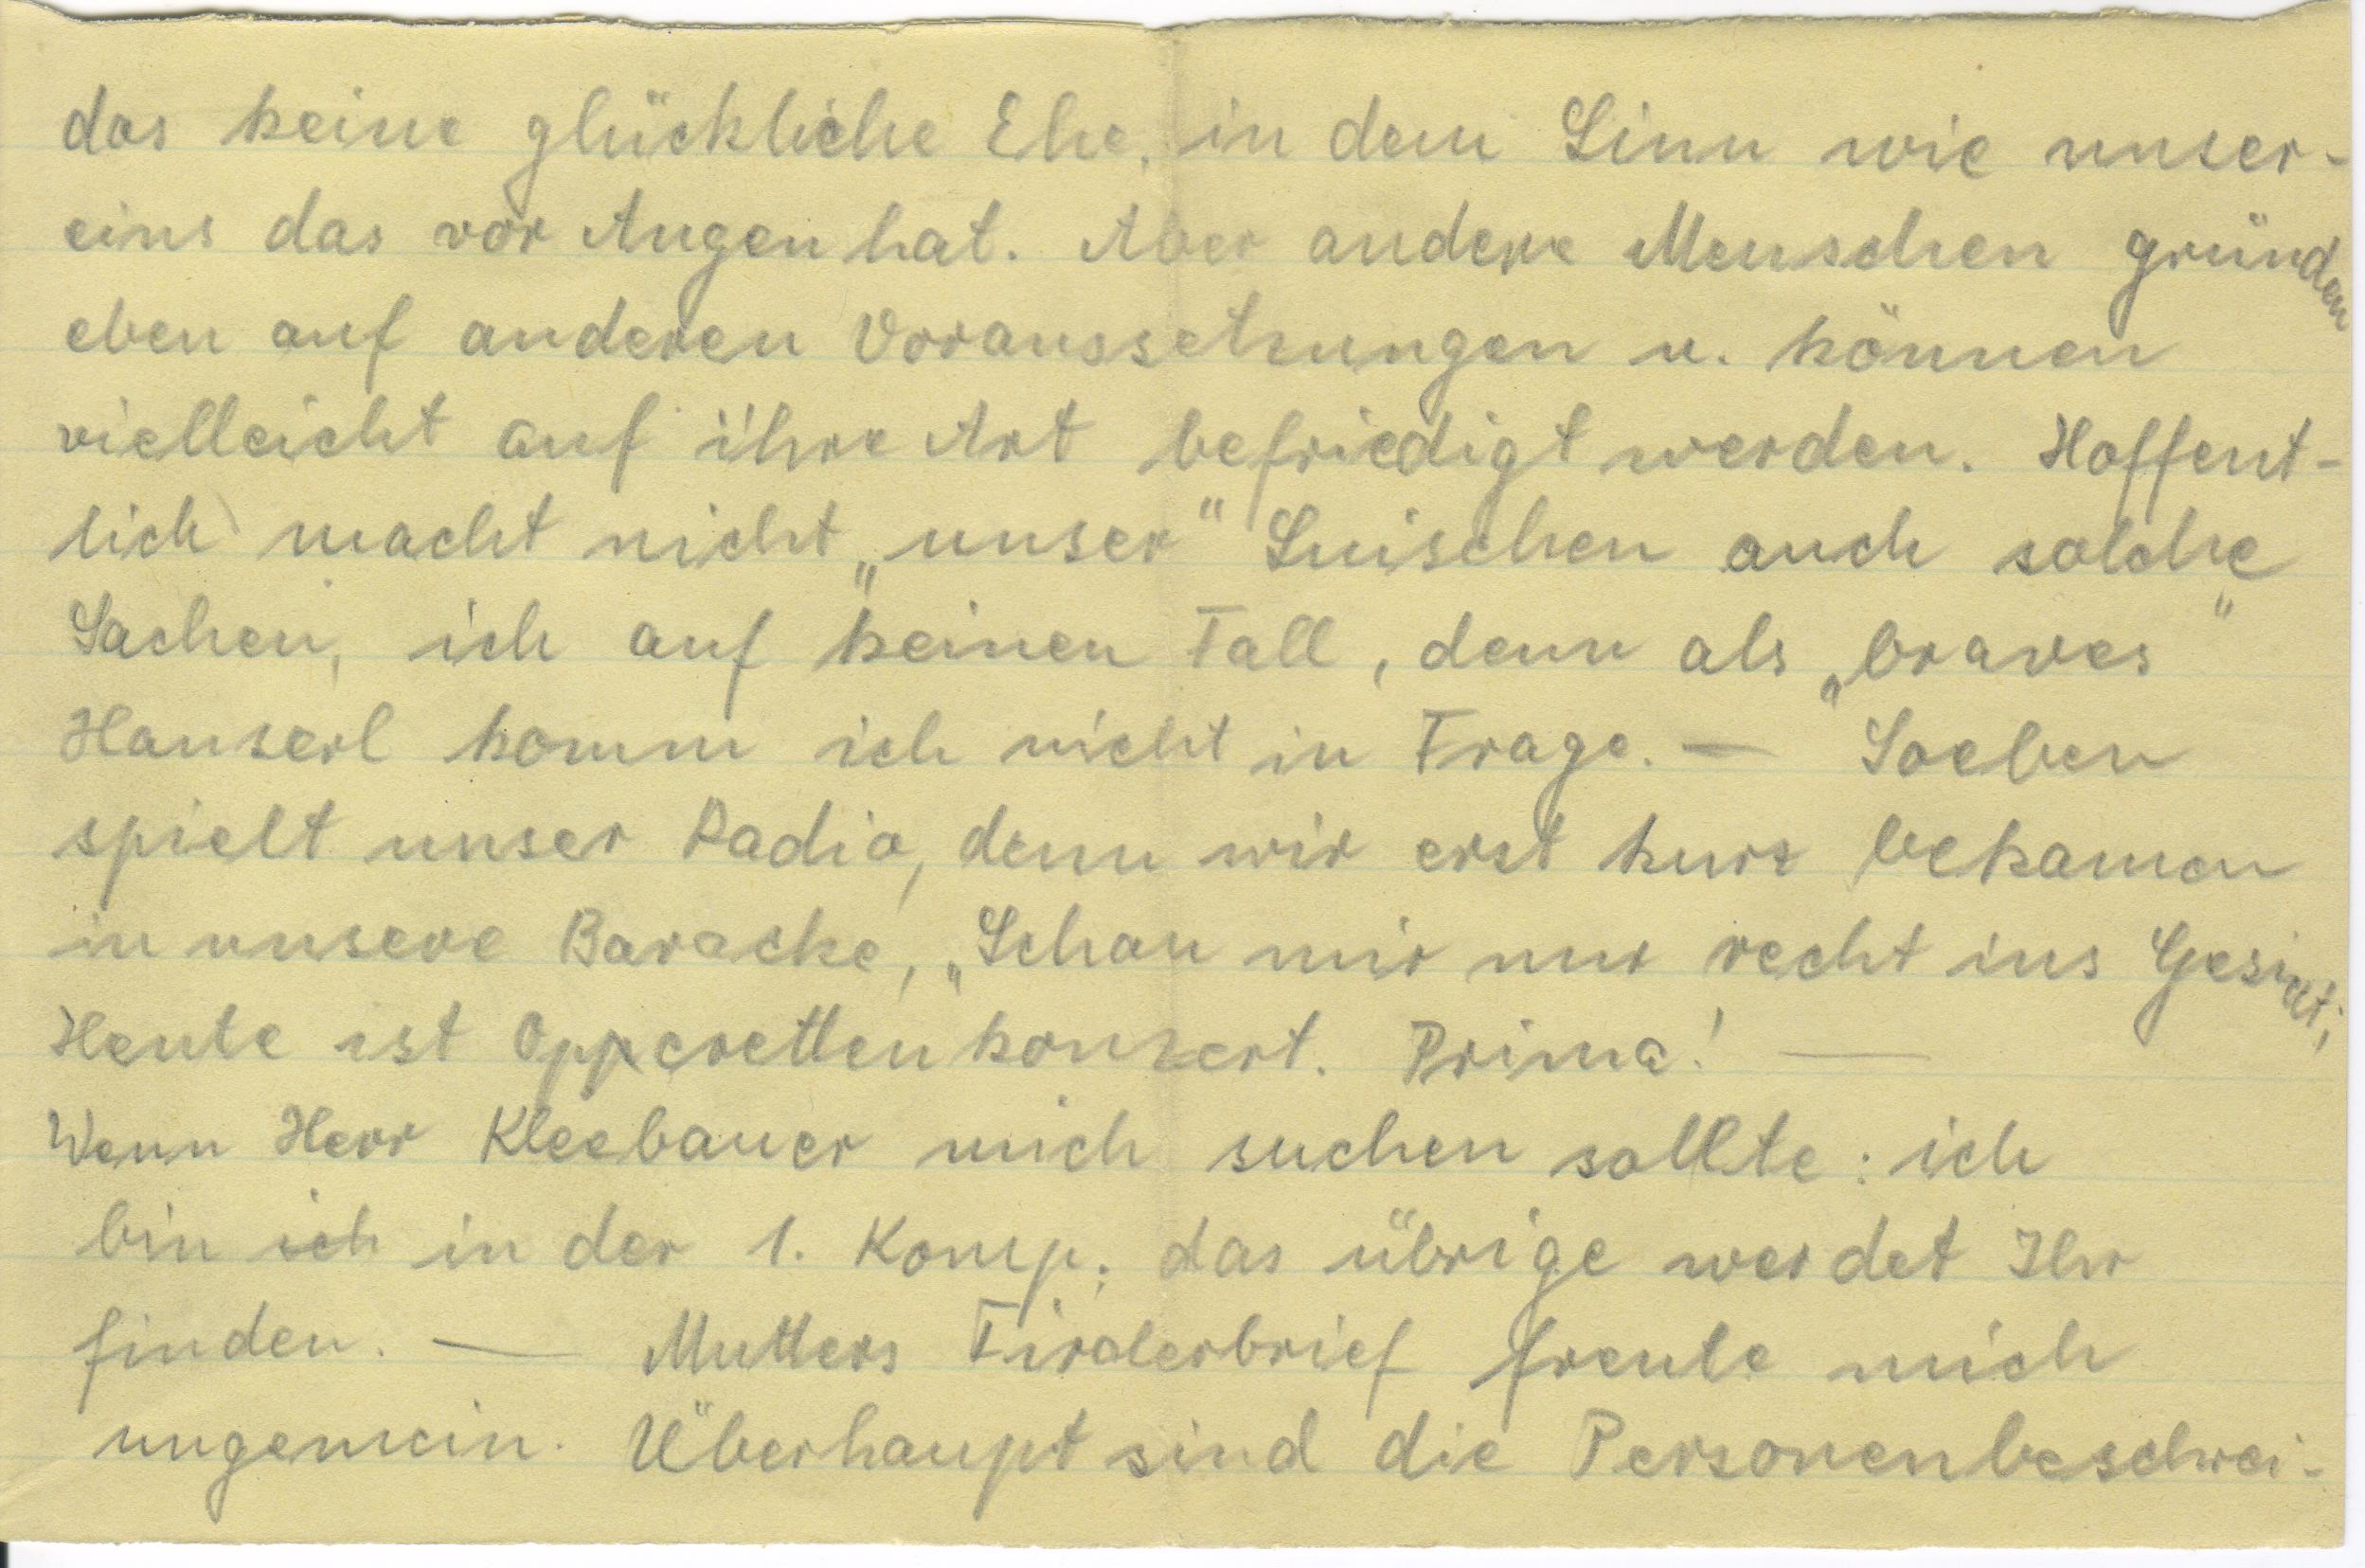 das keine glückliche Ehe, in dem Sinn wie unser-
eins das vor Augen hat. Aber andere Menschen gründen
eben auf anderen Voraussetzungen u. können
vielleicht auf ihre Art befriedigt werden. Hoffent-
lich macht nicht „unser“ Luischen auch solche
Sachen, ich auf keinen Fall, denn als „braves“
Hanserl komm ich nicht in Frage. — Soeben
spielt unser Radio, denn wir erst kurz bekamen
in unsere Baracke, „Schau mir nur recht ins Gesicht;
Heute ist Opperettenkonzert. Prima! —
Wenn Herr Kleebauer mich suchen sollte: ich
bin ich in der 1. Komp; das übrige werdet Ihr
finden. — Mutters freute mich
ungemein. Überhaupt sind die Personenbeschrei-